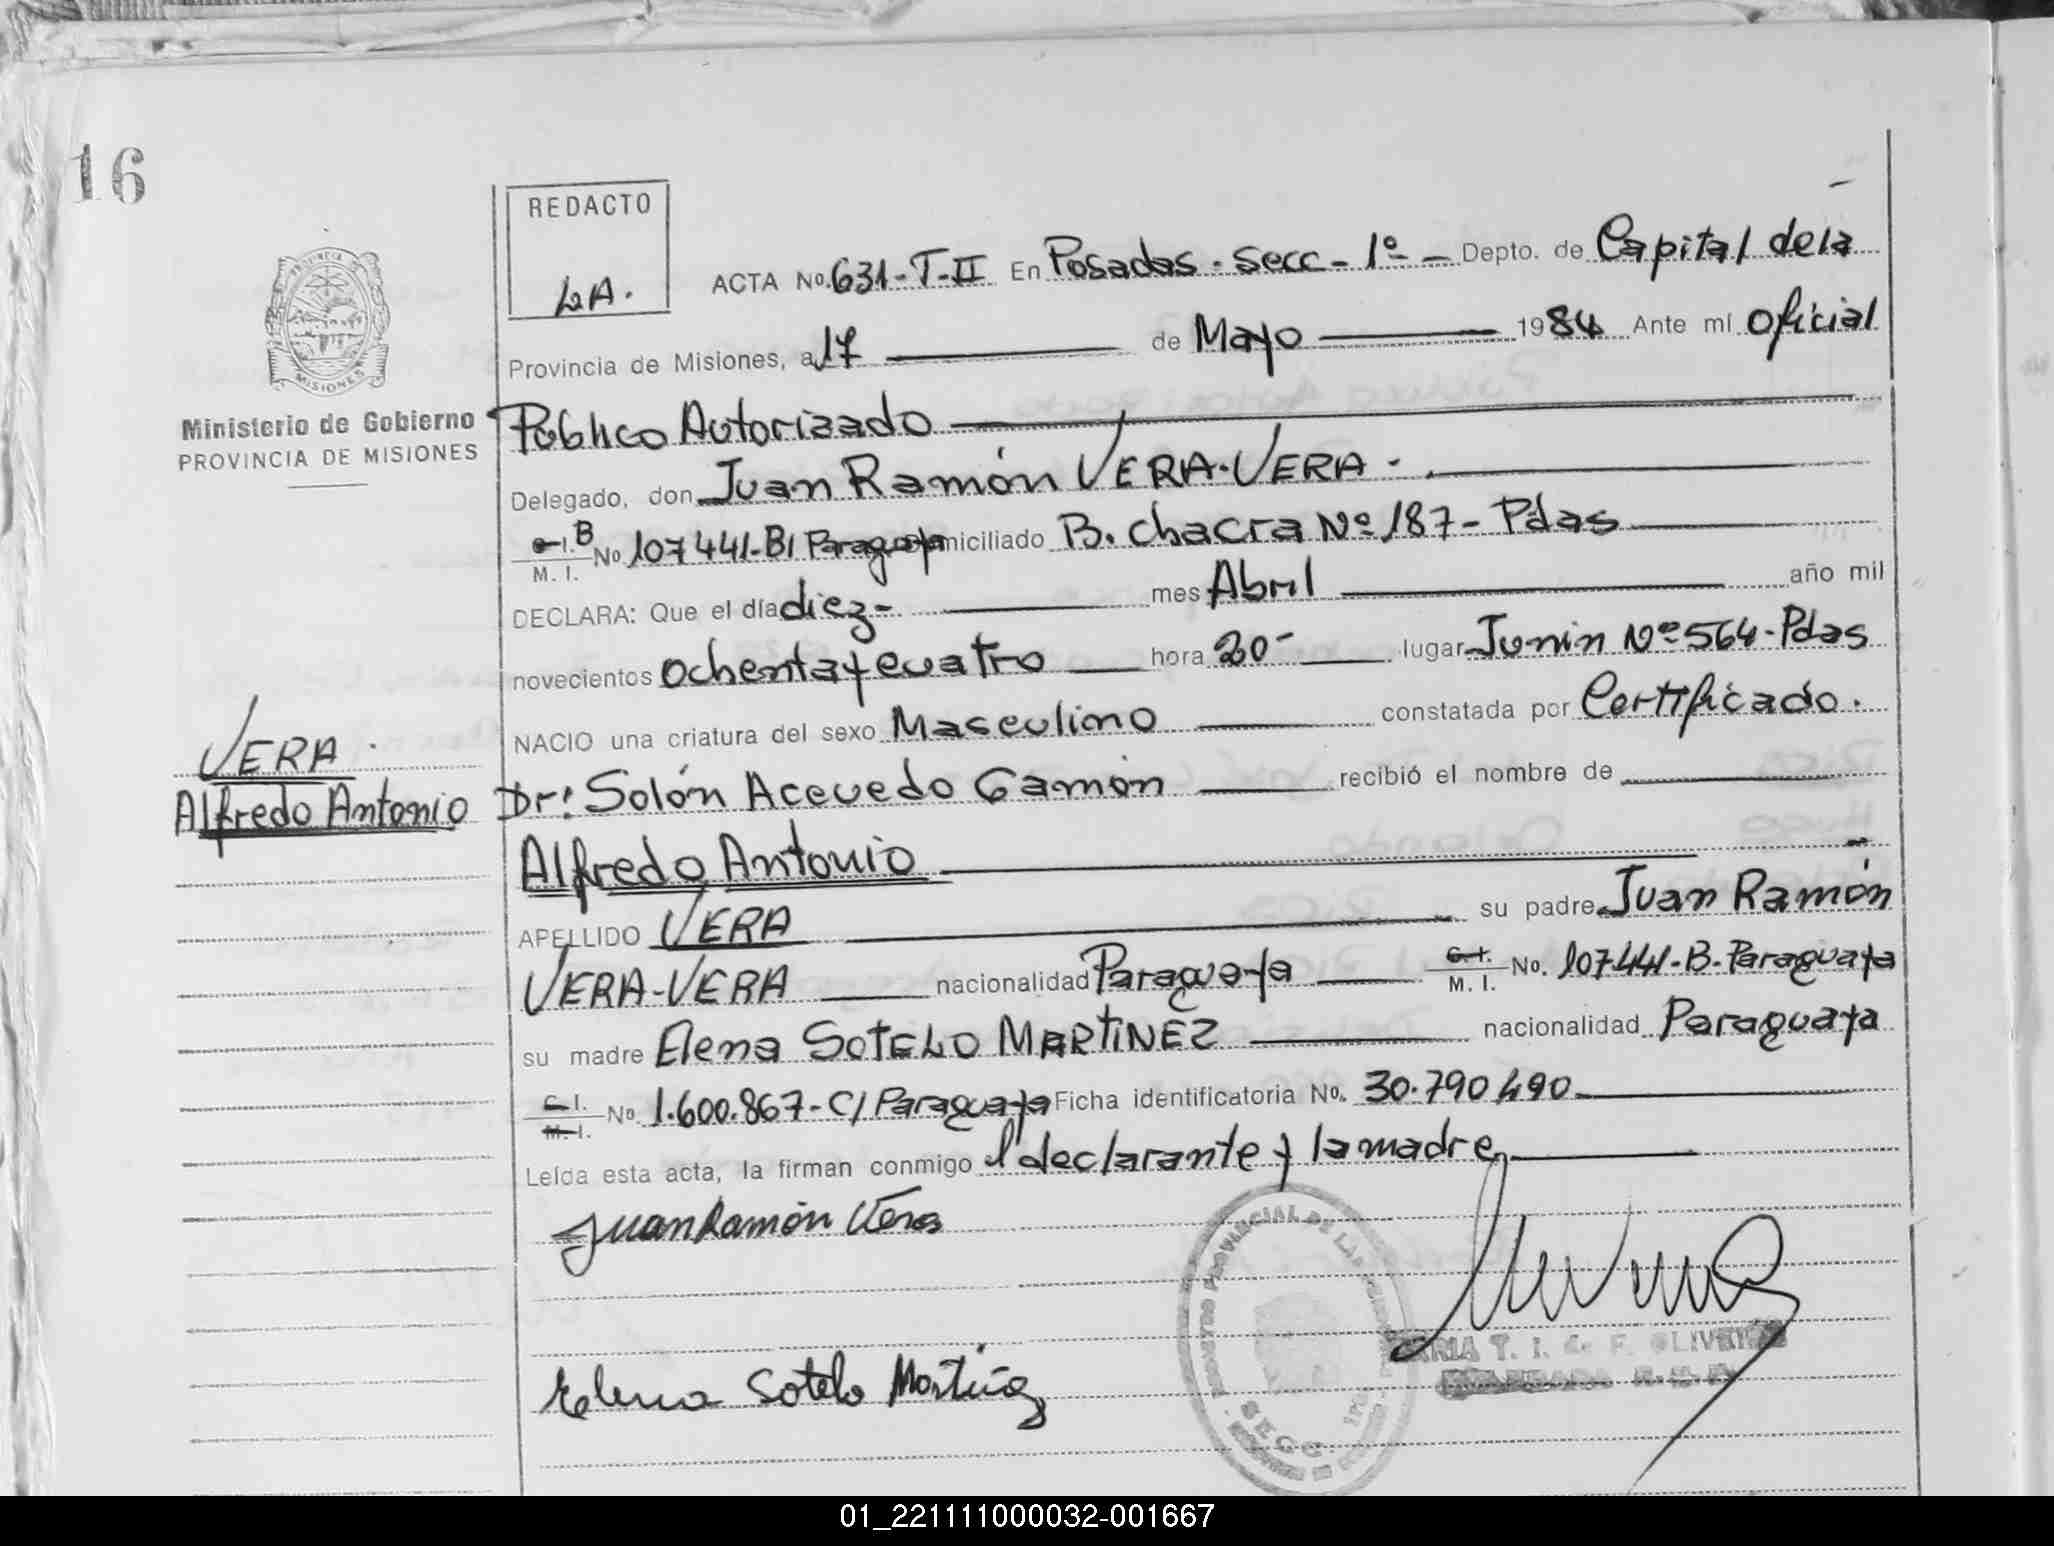 16
REDACTO
LA.
PROVINCIA DE
MISIONES
Ministerio de Gobierno
PROVINCIA DE MISIONES
ACTA No. 631-T-II En Posadas - Secc - 1º - Depto. de Capital de la
Provincia de Misiones, a 17 de Mayo 1984 Ante mí Oficial
Público Autorizado
Delegado, don Juan Ramón VERA-VERA -
C.I.B M. I. No 107441-B/ Paraguaya miciliado B. Chacra Nº 187 - Pdas
DECLARA: Que el día diez - mes Abril año mil
novecientos ochenta y cuatro hora 20- lugar Junin Nº 564 - Pdas
NACIO una criatura del sexo Masculino constatada por Certificado.
Dr: Solón Acevedo Gamón recibió el nombre de
Alfredo Antonio
APELLIDO VERA su padre Juan Ramón
VERA-VERA nacionalidad Paraguaya C.I. M. I. No. 107441-B-Paraguaya
su madre Elena SOTELO MARTINEZ nacionalidad Paraguaya
C.I. M. I. No. 1.600.867-C/ Paraguaya Ficha identificatoria No. 30.790.490
Leída esta acta, la firman conmigo el declarante y la madre
VERA.
Alfredo Antonio
Juan Ramón Vera
Elena Sotelo Martínez
PROVINCIAL DE LAS
SECC
MARIA T. I. de F. OLIVEIRA
01_221111000032-001667